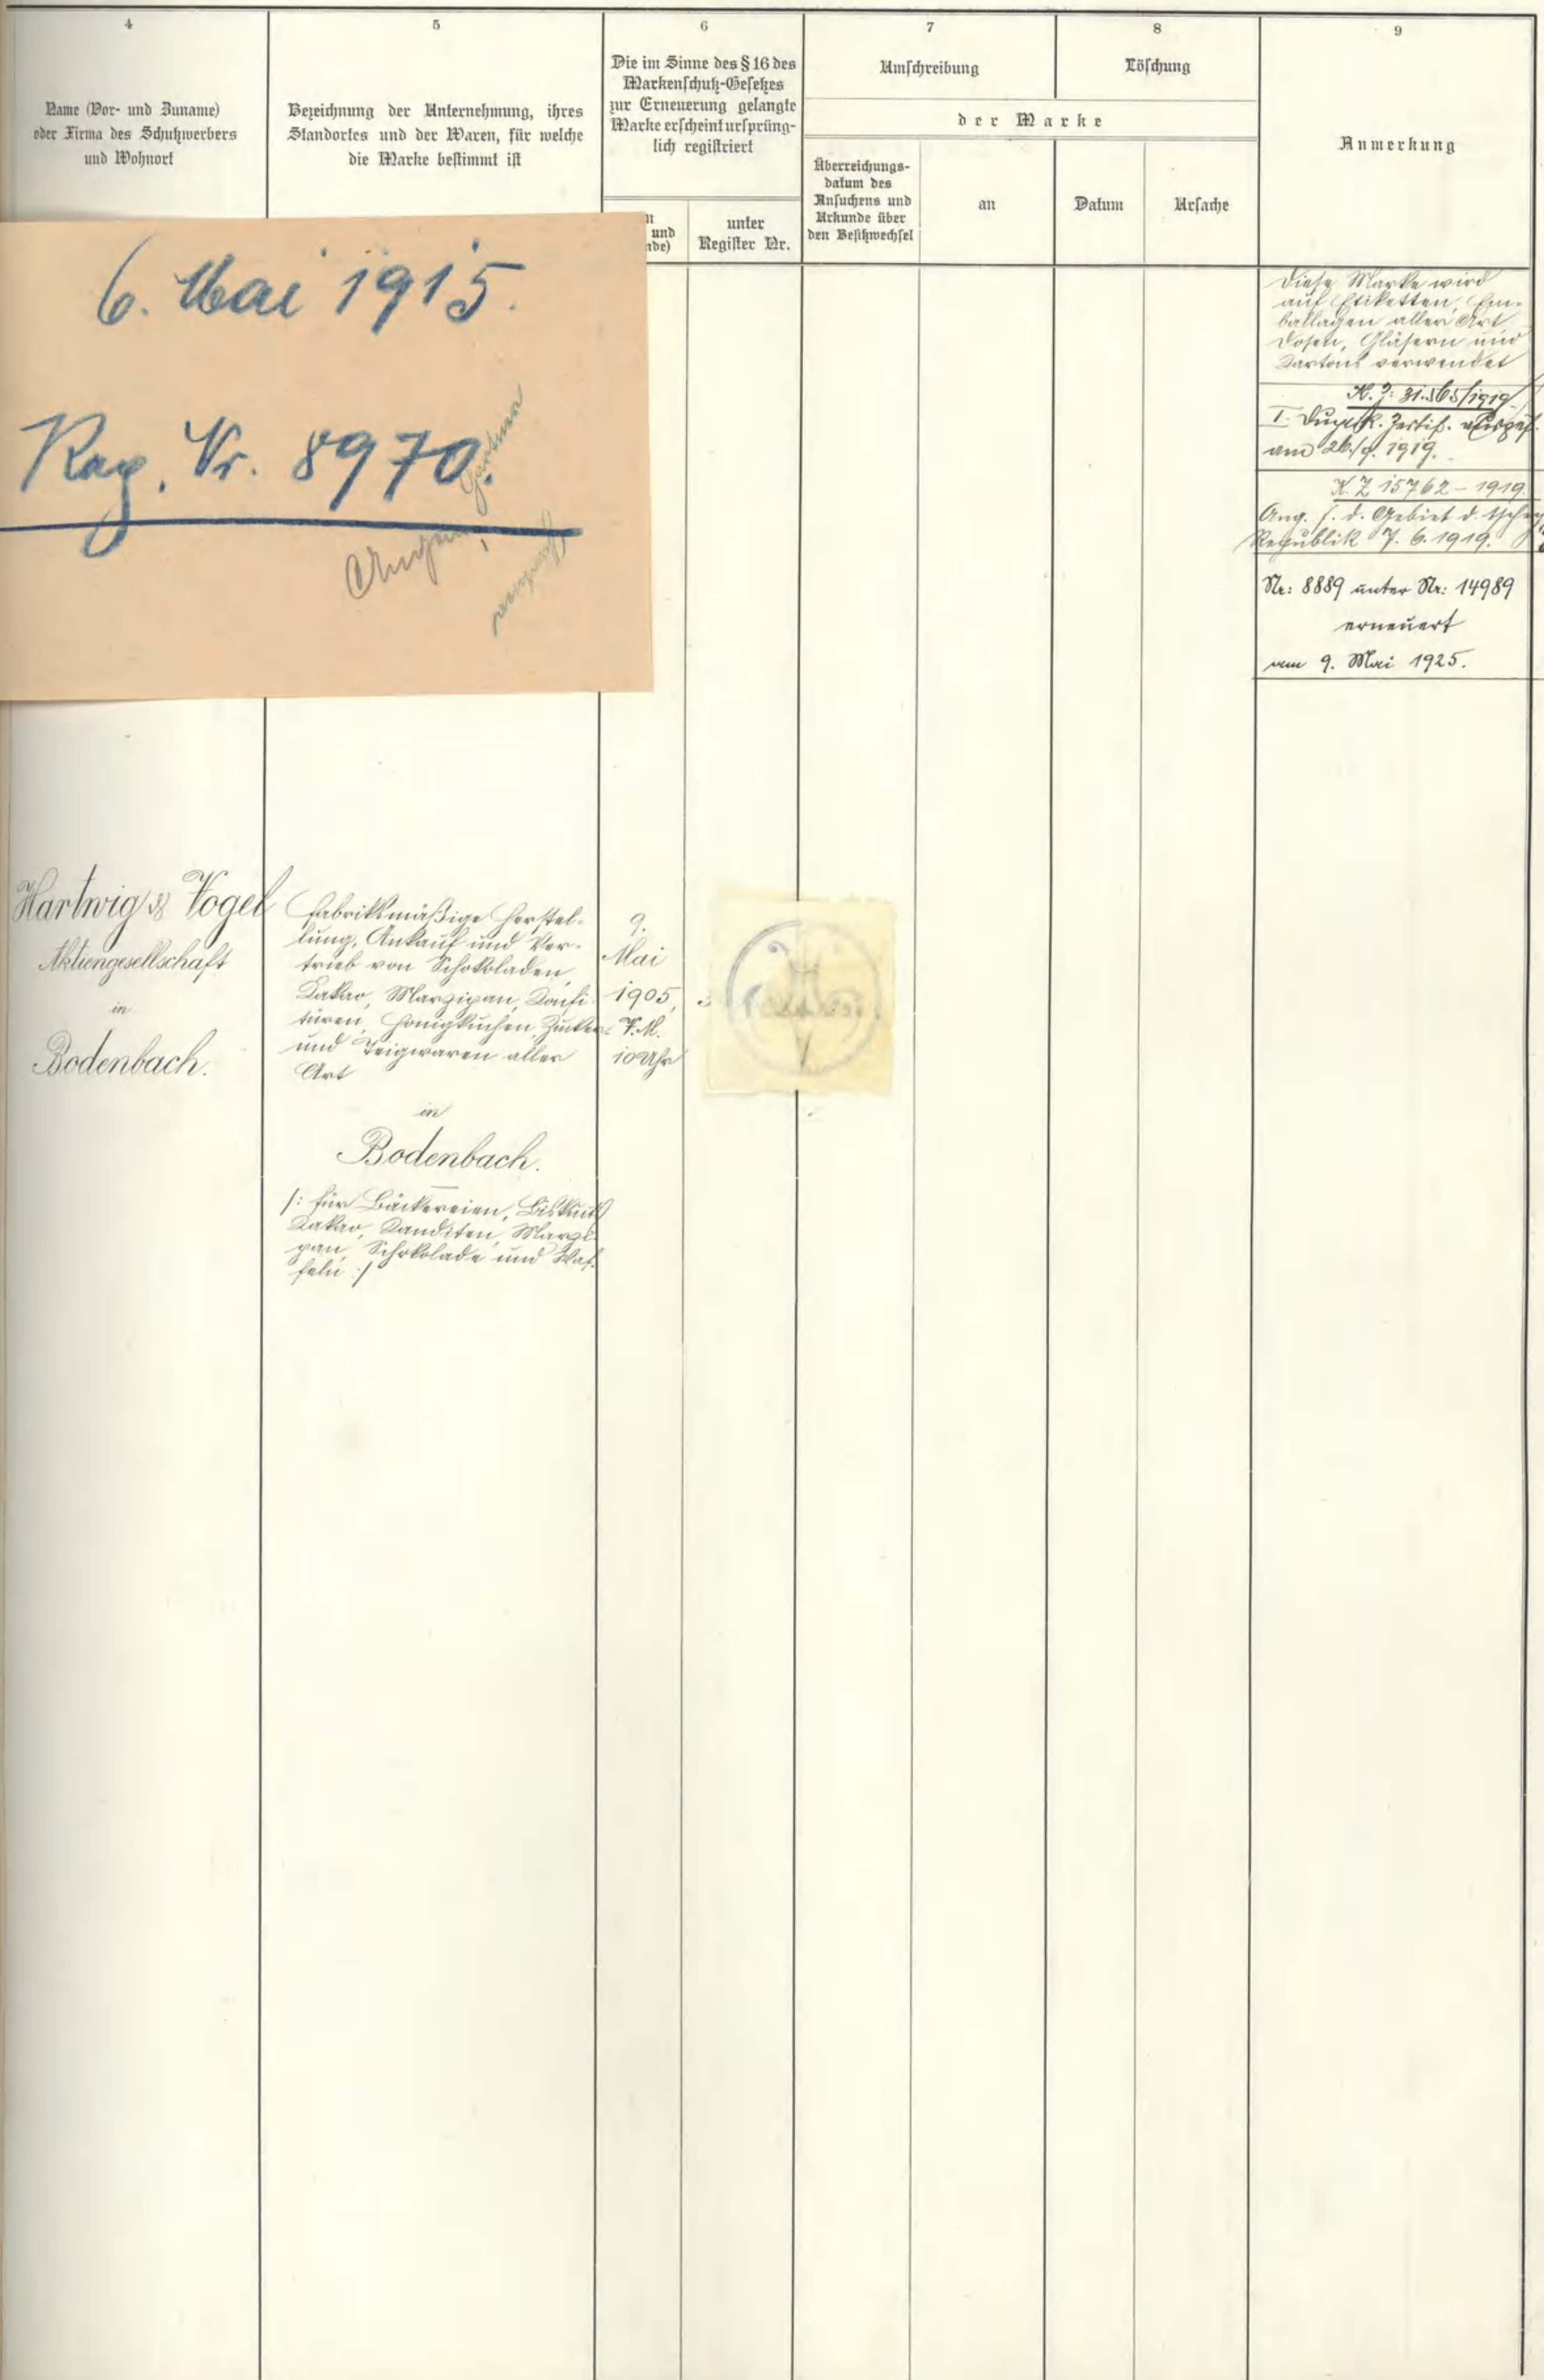 4
Name (Vor- und Zuname)
oder Firma des Schutzwerbers
und Wohnort
5
Bezeichnung der Unternehmung, ihres
Standortes und der Waren, für welche
die Marke bestimmt ist
6
Die im Sinne des § 16 des
Markenschutz-Gesetzes
zur Erneuerung gelangte
Marke erscheint ursprüng-
lich registriert
und
unter
Register Nr.
7
Umschreibung
8
Löschung
der Marke
Überreichungs-
datum des
Ansuchens und
Urkunde über
den Besitzwechsel
an
Datum
Ursache
9
Anmerkung
6. Mai 1915.
Reg. Nr. 8970.
Diese Marke wird
auf Etiketten, Em-
ballagen aller Art
Dosen, Gläsern und
Kartons verwendet
I. Duplik. Zertif.
am 26./9. 1919.
K. Z 15762 – 1919.
Ang. f. d. Gebiet d. tschech
Republik 7. 6. 1919.
Nr: 8889 unter Nr: 14989
erneuert
am 9. Mai 1925.
Hartwig & Vogel
Aktiengesellschaft
in
Bodenbach.
fabriksmäßige Herstel-
lung, Ankauf und Ver-
trieb von Schokoladen
Kakao, Marzipan, Konfi-
türen, Honigkuchen, Zucker-
und Teigwaren aller
Art
in
Bodenbach.
/: für Bäckereien, Biskuits
Kakao, Kanditen, Marzi-
pan, Schokolade und Waf-
feln :/
9.
Mai
1905,
V.M.
10 Uhr